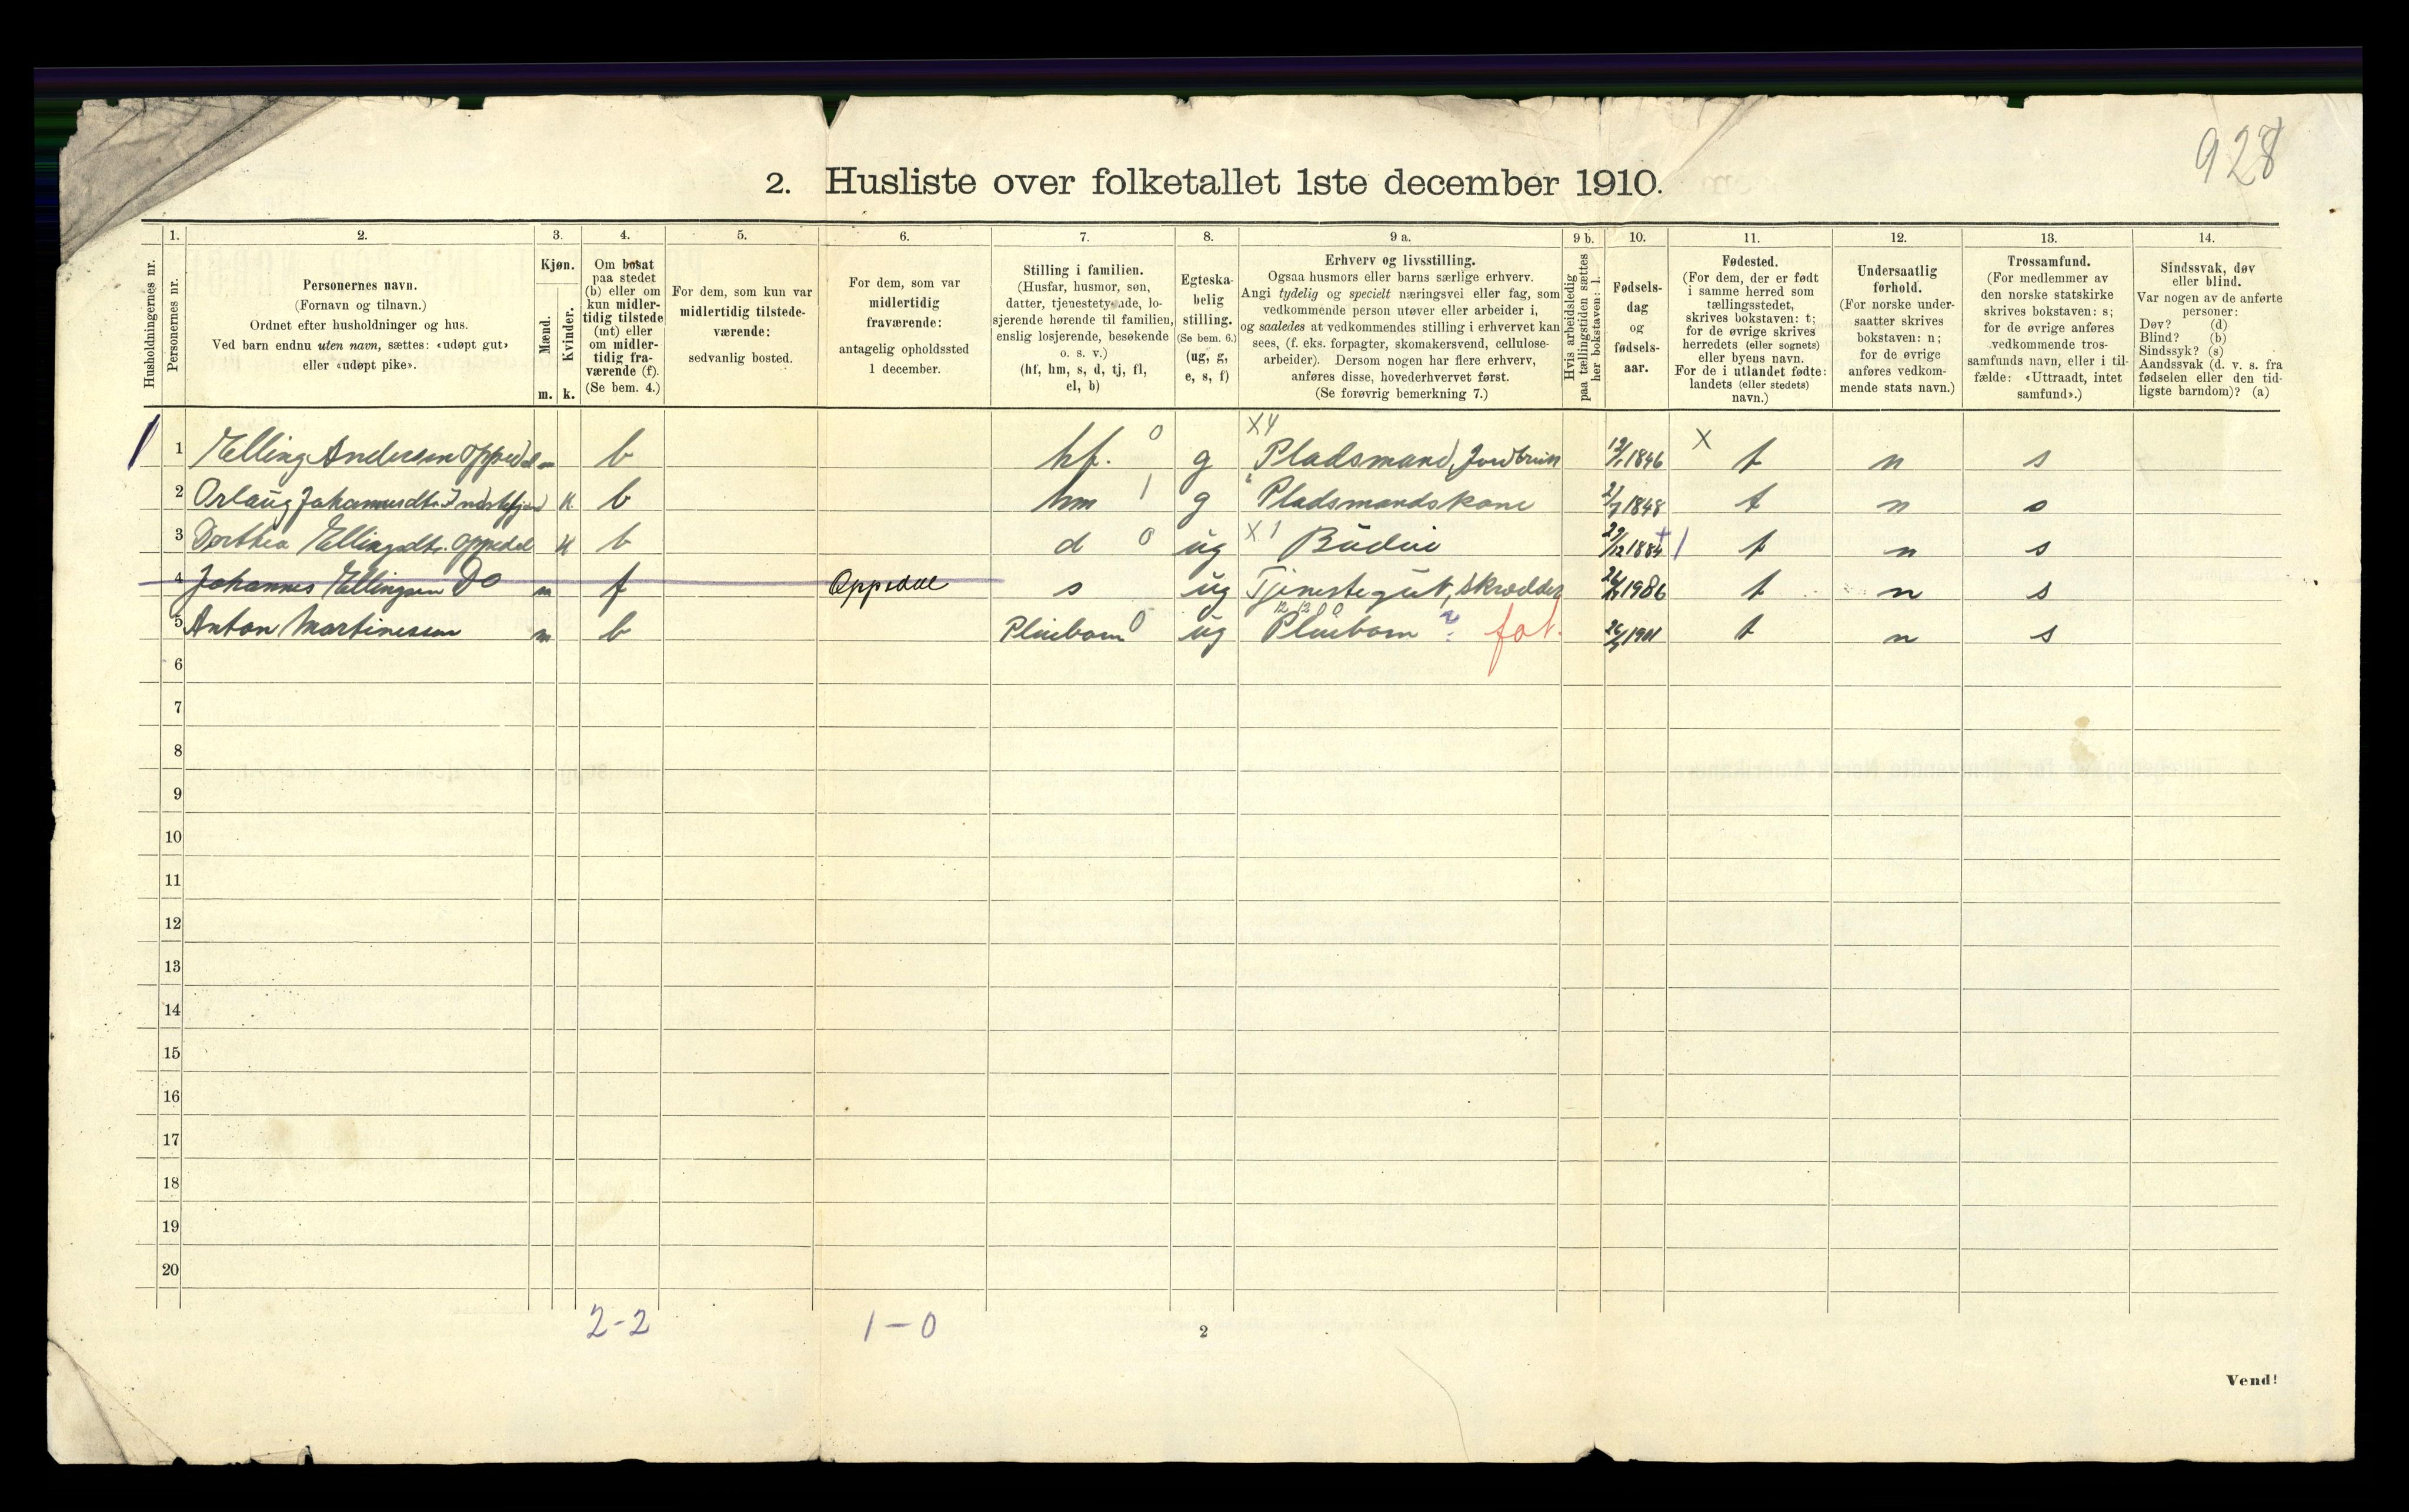 928
2. Husliste over folketallet 1ste december 1910.
1. 2. 3. 4. 5. 6. 7. 8. 9 a. 9 b. 10. 11. 12. 13. 14.
Husholdningernes nr.
Personernes nr.
Personernes navn.
(Fornavn og tilnavn.)
Ordnet efter husholdninger og hus.
Ved barn endnu uten navn, sættes: «udøpt gut»
eller «udøpt pike».
Kjøn.
Mænd.
Kvinder.
m. k.
Om bosat
paa stedet
(b) eller om
kun midler-
tidig tilstede
(mt) eller
om midler-
tidig fra-
værende (f).
(Se bem. 4.)
For dem, som kun var
midlertidig tilstede-
værende:
sedvanlig bosted.
For dem, som var
midlertidig
fraværende:
antagelig opholdssted
1 december.
Stilling i familien.
(Husfar, husmor, søn,
datter, tjenestetyende, lo-
sjerende hørende til familien,
enslig losjerende, besøkende
o. s. v.)
(hf, hm, s, d, tj, fl,
el, b)
Egteska-
belig
stilling.
(Se bem. 6.)
(ug, g,
e, s, f)
Erhverv og livsstilling.
Ogsaa husmors eller barns særlige erhverv.
Angi tydelig og specielt næringsvei eller fag, som
vedkommende person utøver eller arbeider i,
og saaledes at vedkommendes stilling i erhvervet kan
sees, (f. eks. forpagter, skomakersvend, cellulose-
arbeider). Dersom nogen har flere erhverv,
anføres disse, hovederhvervet først.
(Se forøvrig bemerkning 7.)
Hvis arbeidsledig
paa tællingstiden sættes
her bokstaven: l.
Fødsels-
dag
og
fødsels-
aar.
Fødested.
(For dem, der er født
i samme herred som
tællingsstedet,
skrives bokstaven: t;
for de øvrige skrives
herredets (eller sognets)
eller byens navn.
For de i utlandet fødte:
landets (eller stedets)
navn.)
Undersaatlig
forhold.
(For norske under-
saatter skrives
bokstaven: n;
for de øvrige
anføres vedkom-
mende stats navn.)
Trossamfund.
(For medlemmer av
den norske statskirke
skrives bokstaven: s;
for de øvrige anføres
vedkommende tros-
samfunds navn, eller i til-
fælde: «Uttraadt, intet
samfund».)
Sindssvak, døv
eller blind.
Var nogen av de anførte
personer:
Døv? (d)
Blind? (b)
Sindssyk? (s)
Aandssvak (d. v. s. fra
fødselen eller den tid-
ligste barndom)? (a)
X4 X
1 1 Elling Andersen Oppedal m b hf. 0 g Pladsmand, Jordbrug 1846 t n s
2 Orlaug Johannesdtr. k b hm 1 g " Pladsmandskone 1848 t n s
3 Dorthea Ellingsdtr. Oppedal k b d 0 ug X 1 Budeie 29/12 1884 t n s
4 Johannes Ellingsen Do m f Oppedal s ug Tjenestegut, Skrædder 1986 t n s
5 Anton Martinessen m b Pleiebarn 0 ug Pleiebarn ? fat. 1901 t n s
6
7
8
9
10
11
12
13
14
15
16
17
18
19
20
2-2 1-0
2
Vend!